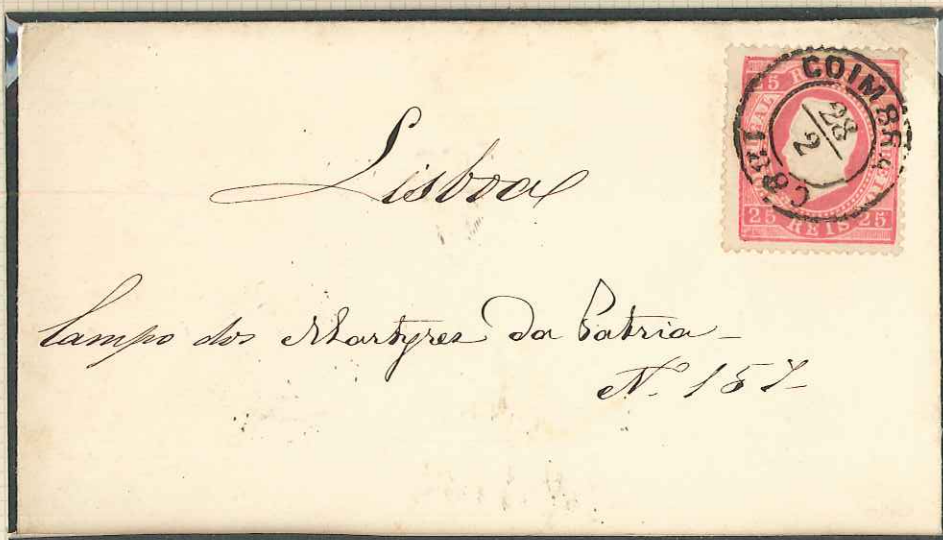 COIMBRA
28/2
25 REIS 25
Lisboa
Campo dos Martyres da Patria
Nº 157